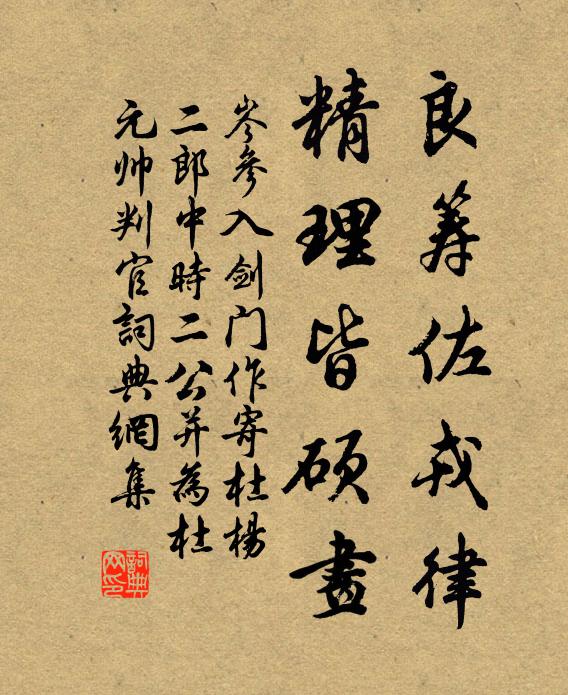 良筹佐戎律
精理皆硕畫
岑參入剑门作寄杜楊
二郎中時二公并為杜
元帅判官詞典網集
詞典网印